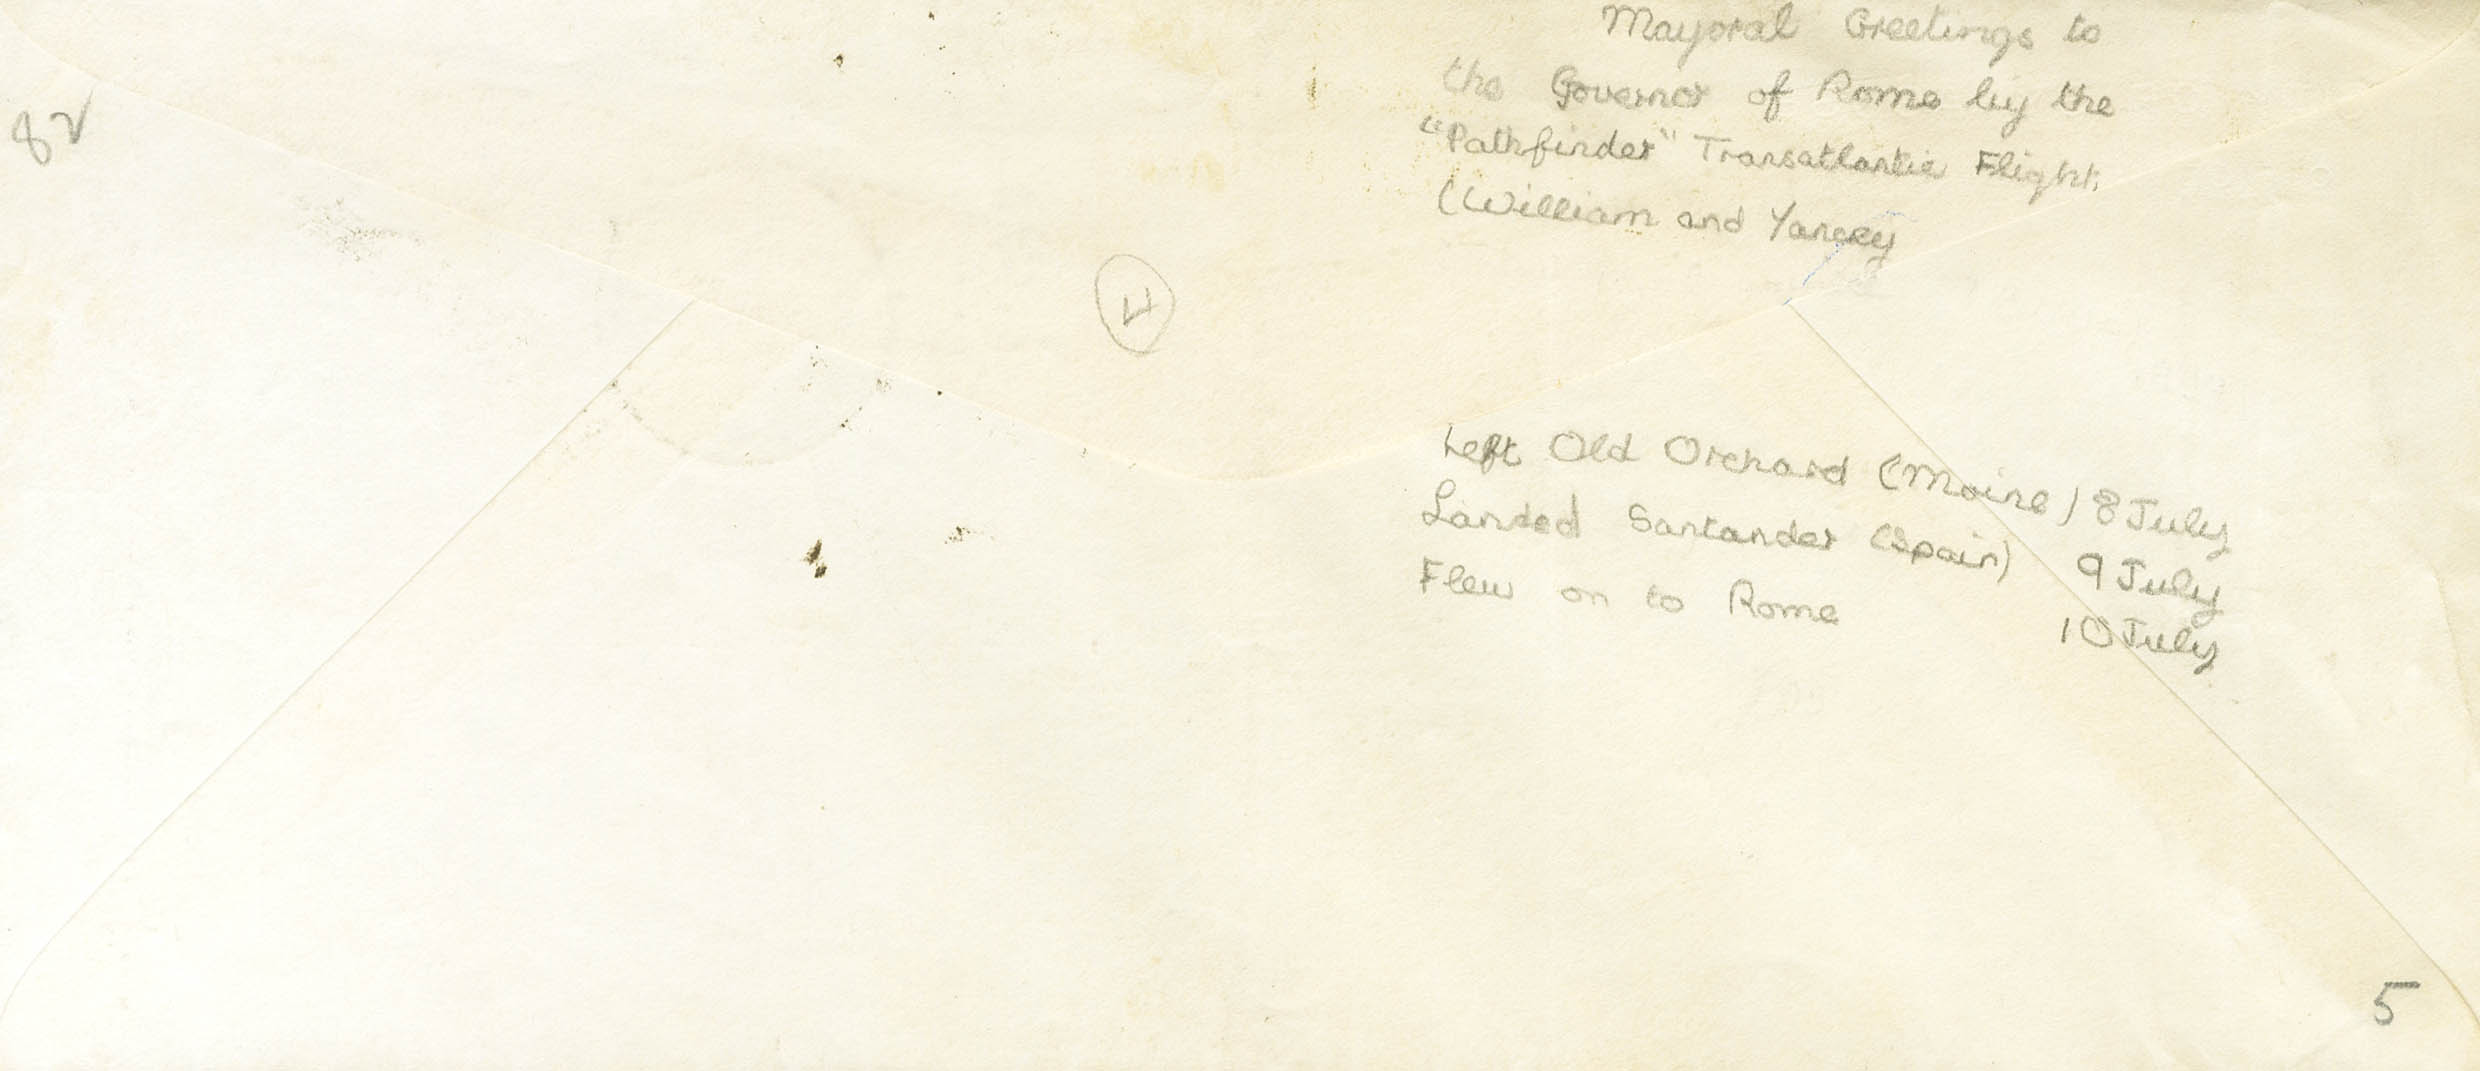 Mayoral Greetings to
the Governor of Rome by the
"Pathfinder" Transatlantic Flight.
(William and Yancey
82
Left Old Orchard (Maine) 8 July
Landed Santander (Spain) 9 July
Flew on to Rome 10 July
5